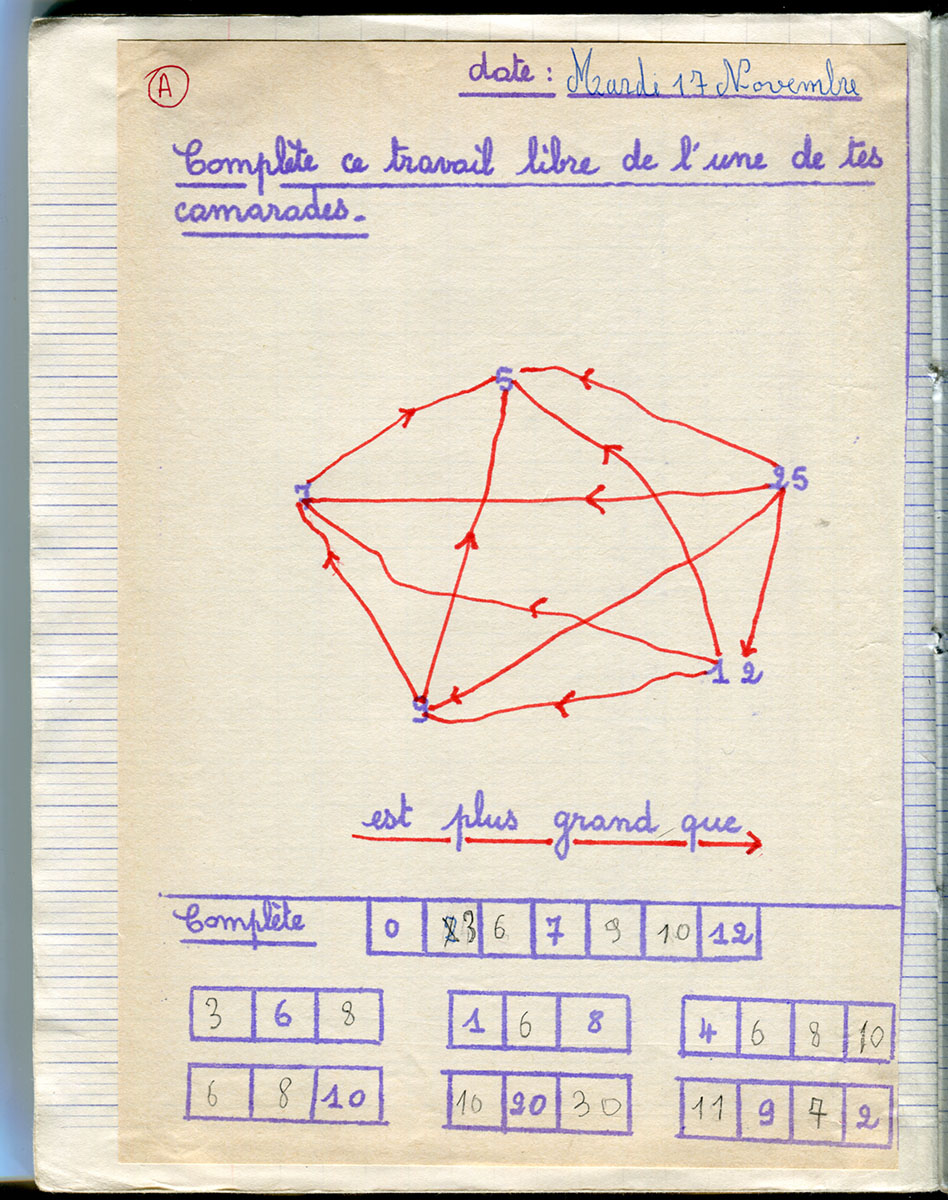 A
date : Mardi 17 Novembre
Complète ce travail libre de l'une de tes
camarades.
5
7
25
12
9
est plus grand que
Complète 0 3 6 7 9 10 12
3 6 8 1 6 8 4 6 8 10
6 8 10 10 20 30 11 9 7 2